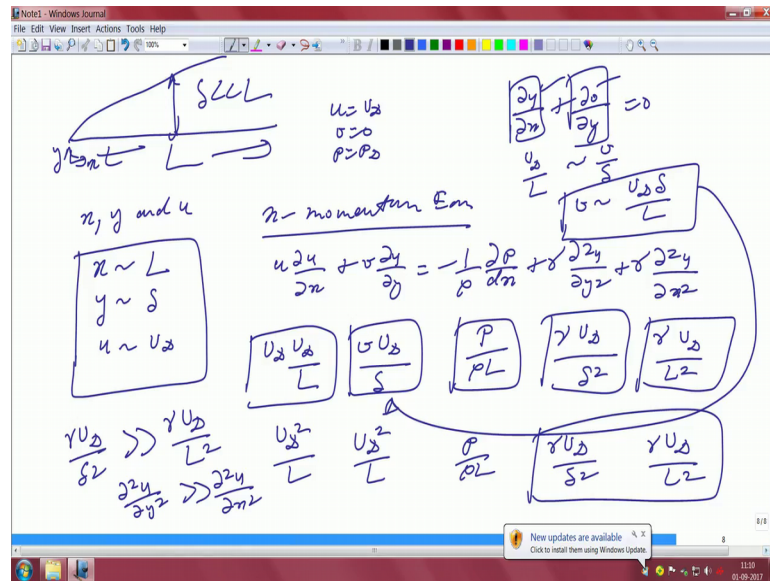 Note1 - Windows Journal
File Edit View Insert Actions Tools Help
100%
δ<<L
u = U∞
v = 0
P = P∞
∂u/∂x + ∂v/∂y = 0
y
x
L
U∞/L ~ v/δ
v ~ U∞δ/L
x, y and u
x-momentum Eqn
x ~ L
y ~ δ
u ~ U∞
u ∂u/∂x + v ∂u/∂y = -1/ρ ∂P/∂x + γ ∂²u/∂y² + γ ∂²u/∂x²
U∞ U∞/L
v U∞/δ
P/ρL
γ U∞/δ²
γ U∞/L²
γU∞/δ² >> γU∞/L²
U∞²/L
U∞²/L
P/ρL
γU∞/δ²
γU∞/L²
∂²u/∂y² >> ∂²u/∂x²
8/8
8
New updates are available
Click to install them using Windows Update.
11:10
01-09-2017